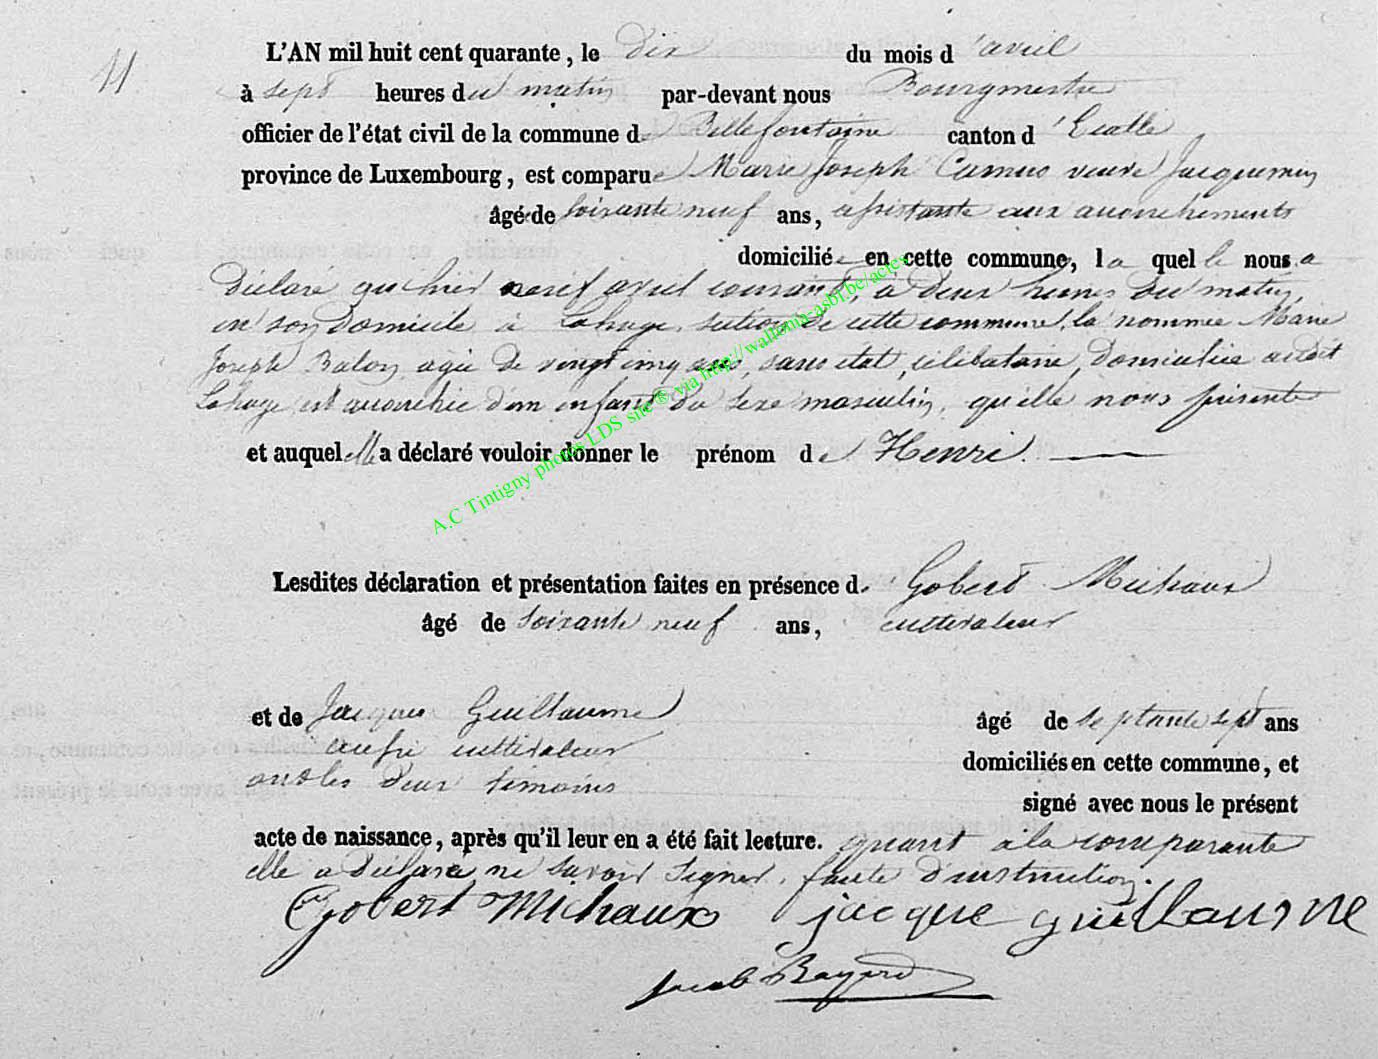 11
L'AN mil huit cent quarante, le dix du mois d'avril
à sept heures du matin par-devant nous Bourgmestre
officier de l'état civil de la commune de Bellefontaine canton d'Etalle
province de Luxembourg, est comparue Marie Joseph Camus veuve Jacquemin
âgé de soixante neuf ans, assistante aux accouchements
domiciliée en cette commune, laquelle nous a
déclaré qu'hier neuf avril courant, à deux heures du matin,
en son domicile à Lahage, section de cette commune, la nommée Marie
Joseph Balon agée de vingt cinq ans, sans état, célibataire, domiciliée audit
Lahage est accouchée d'un enfant du sexe masculin, qu'elle nous présente
et auquel elle a déclaré vouloir donner le prénom de Henri.
Lesdites déclaration et présentation faites en présence de Gobert Michaux
âgé de soixante neuf ans, cultivateur
et de Jacques Guillaume âgé de septante sept ans
aussi cultivateur domiciliés en cette commune, et
ont les deux témoins signé avec nous le présent
acte de naissance, après qu'il leur en a été fait lecture. quant à la comparante
elle a déclaré ne savoir signer, faute d'instruction.
Gobert Michaux jacque guillausme
Jacob Bayard
A.C Tintigny photos LDS site® via http://wallonia-asbl.be/actes